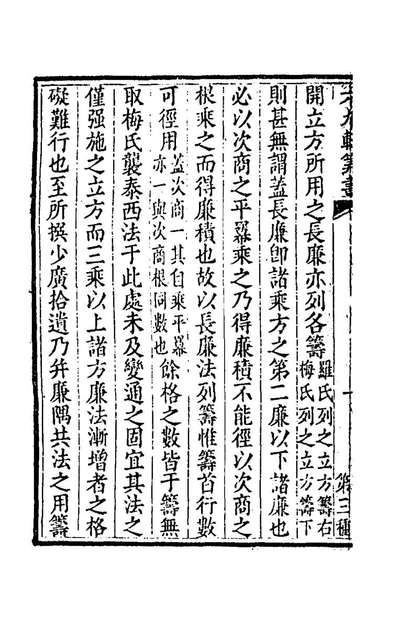 開立方所用之長廉亦列各籌羅氏列之立方籌右梅氏列之立方籌下
則甚無謂蓋長廉卽諸乘方之第二廉以下諸廉也
必以次商之平羃乘之乃得廉積不能徑以次商之
根乘之而得廉積也故以長廉法列籌惟籌首行數
可徑用蓋次商一其自乘平羃亦一與次商根同數也餘格之數皆于籌無
取梅氏襲泰西法于此處未及變通之固宜其法之
僅强施之立方而三乘以上諸方廉法漸增者之格
礙難行也至所撰少廣拾遺乃幷廉隅共法之用籌
第三種